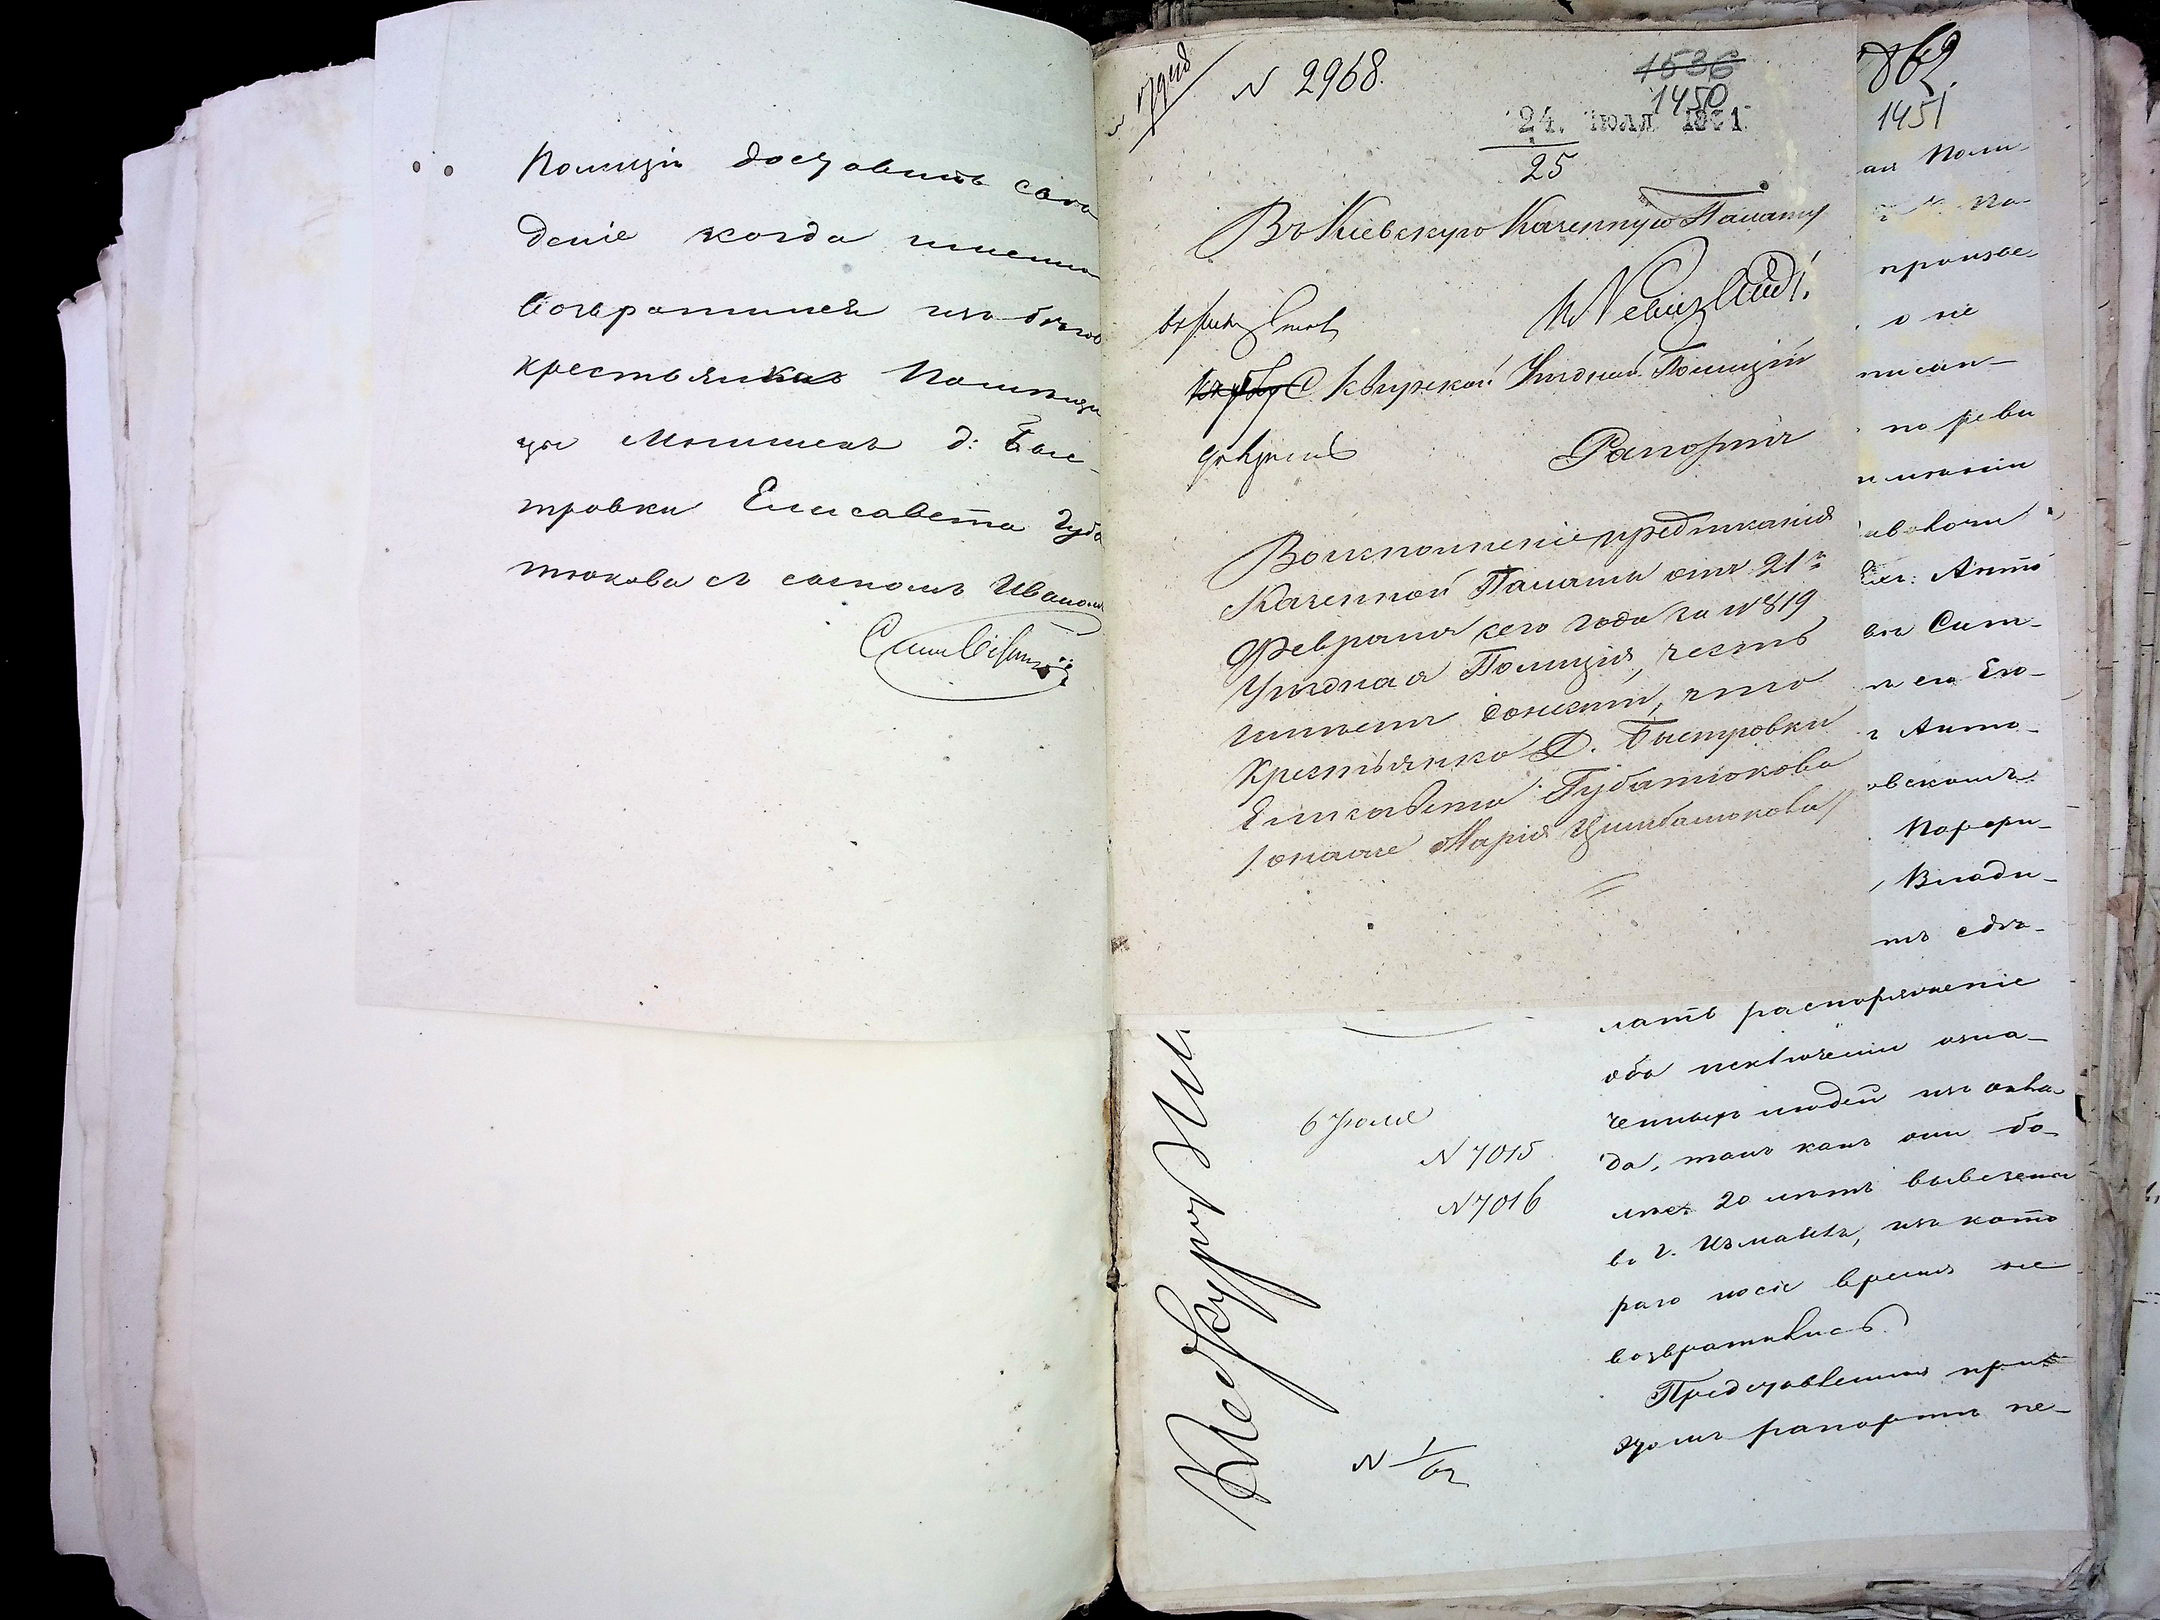 Полиціи доставить свѣ
деніе когда именно
возвратился изъ бѣговъ
крестьянка Помѣщи
цы д: Быс-
тровки Елисавета Губа
тюкова съ сыномъ Иваномъ
N 2968.
1536
1450
24. ІЮЛЯ 1861
25
Въ Кіевскую Казенную Палату
Сквирской Уѣздной Полиціи
Рапортъ
Во исполненіе предписанія
Казенной Палаты отъ 21го
Февраля сего года за N 819
Уѣздная Полиція, честь
имѣетъ донести, что
крестьянка Д. Быстровки
Елисавета Губатюкова
/ онаже Марія Цимбалюкова //
862.
1451
ая Поли-
По-
произве-
о не
писан-
по реви
имѣніи
Анто
Сит-
его Ею-
Анто-
овскомъ
Порфи-
, Влади-
тъ сдѣ-
лать распоряженіе
объ исключеніи озна-
ченныхъ людей изъ окла-
да, такъ какъ они бо-
лѣе 20 лѣтъ вывезены
въ г. Измаилъ, изъ кото
раго после время не
возвратились.
Представленныя при
этомъ рапортѣ ре-
6 Іюля
N 7015
N 7016
N 1/62